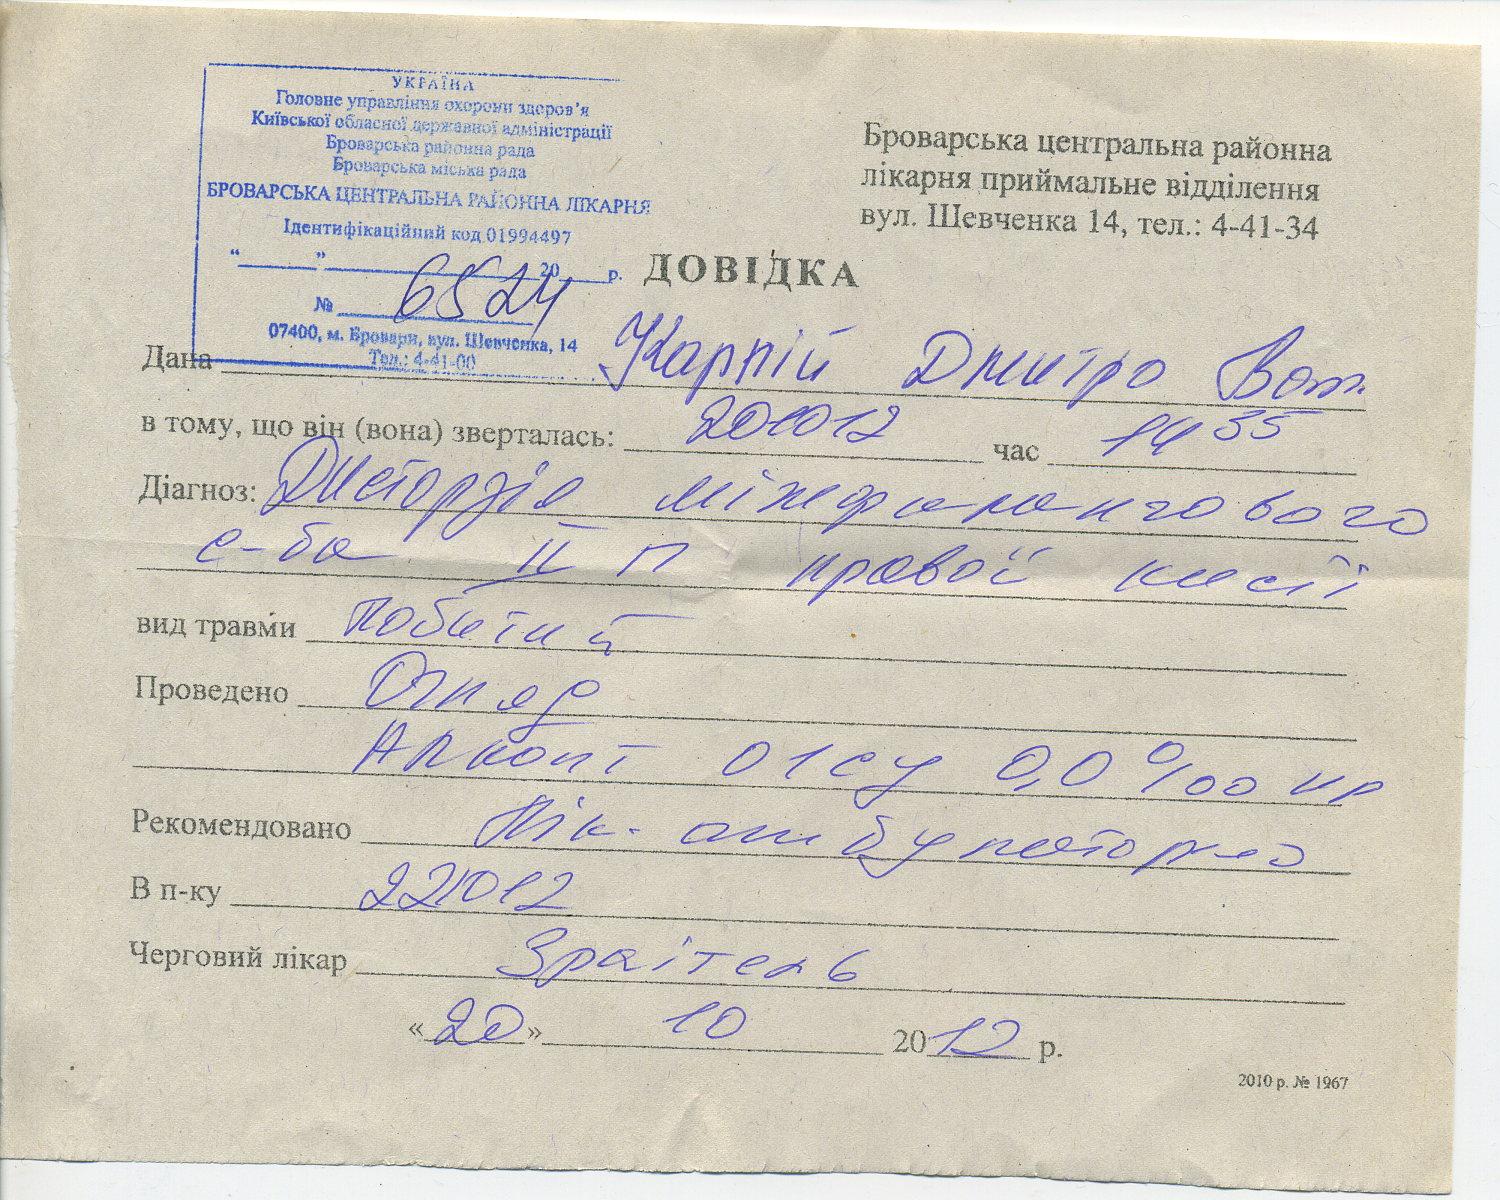 УКРАЇНА
Головне управління охорони здоров'я
Київської обласної державної адміністрації
Броварська районна рада
Броварська міська рада
БРОВАРСЬКА ЦЕНТРАЛЬНА РАЙОННА ЛІКАРНЯ
Ідентифікаційний код 01994497
“ ” 20 р.
№ 6524
07400, м. Бровари, вул. Шевченка, 14
Тел.: 4-41-00
Броварська центральна районна
лікарня приймальне відділення
вул. Шевченка 14, тел.: 4-41-34
ДОВІДКА
Дана Карпій Дмитро
в тому, що він (вона) зверталась: 201012 час 14 35
Діагноз: Дисторзія міжфалангового
с-ба II п правої кисті
вид травми побитий
Проведено Огляд
Алкотест 0,0 ‰
Рекомендовано Лік. амбулаторно
В п-ку 221012
Черговий лікар
«20» 10 2012 р.
2010 р. № 1967